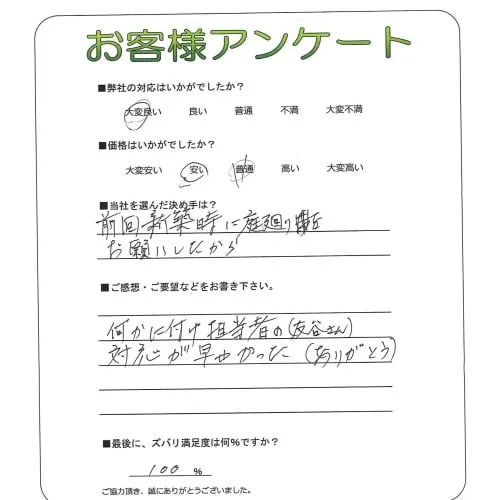 お客様アンケート
■弊社の対応はいかがでしたか?
大変良い 良い 普通 不満 大変不満
■価格はいかがでしたか?
大変安い 安い 普通 高い 大変高い
■当社を選んだ決め手は?
前回新築時に庭廻り
お願いしたから
■ご感想・ご要望などをお書き下さい。
何かに付け担当者の(友谷さん)
対応が早かった(ありがとう)
■最後に、ズバリ満足度は何%ですか?
100 %
ご協力頂き、誠にありがとうございました。